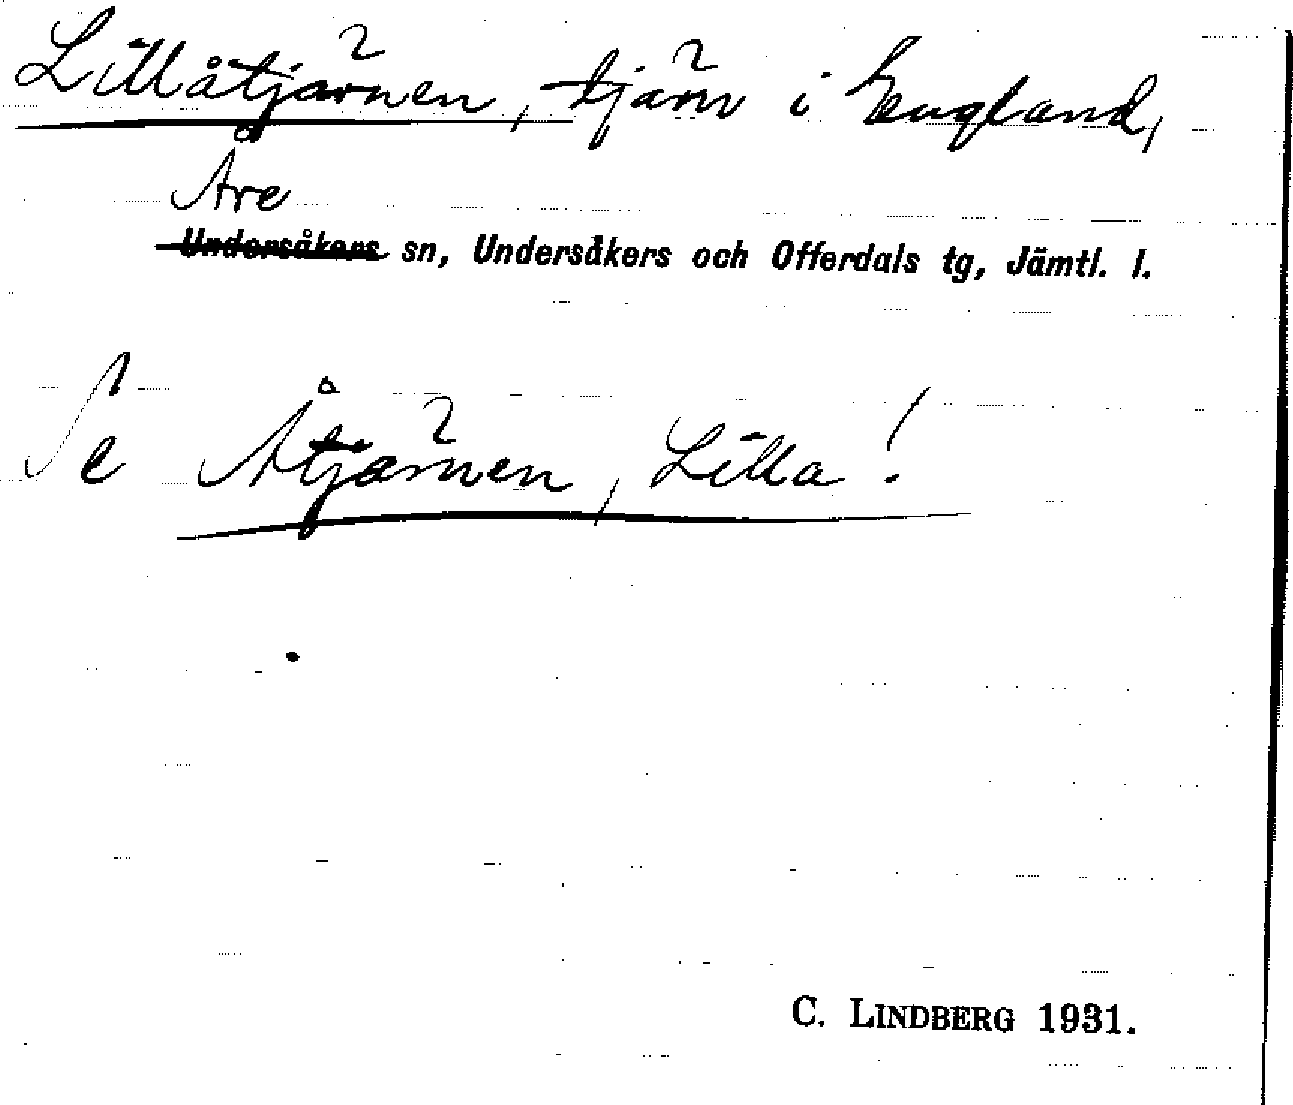 Lillåtjärnen, tjärn i England,
Åre
Undersåkers sn, Undersåkers och Offerdals tg, Jämtl. l.
Se Åtjärnen, Lilla!
C. LINDBERG 1931.